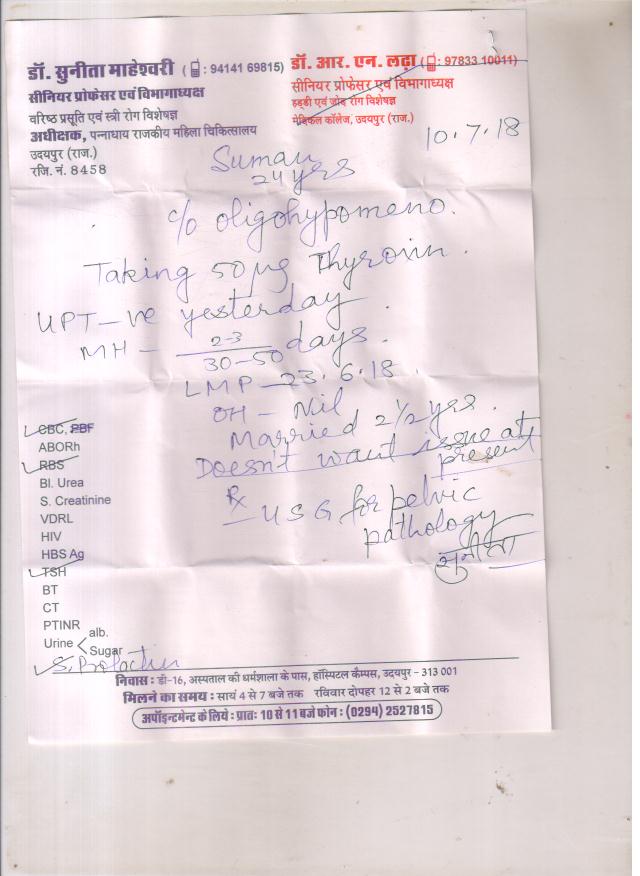 डॉ. सुनीता माहेश्वरी ( : 94141 69815)
सीनियर प्रोफेसर एवं विभागाध्यक्ष
वरिष्ठ प्रसूति एवं स्त्री रोग विशेषज्ञ
अधीक्षक, पन्नाधाय राजकीय महिला चिकित्सालय
उदयपुर (राज.)
रजि. नं. 8458
डॉ. आर. एन. लढ़ा ( : 97833 10011)
सीनियर प्रोफेसर एवं विभागाध्यक्ष
हड्डी एवं जोड़ रोग विशेषज्ञ
मेडिकल कॉलेज, उदयपुर (राज.)
10.7.18
Suman
24 yrs
c/o oligohypomeno.
Taking 50 µg Thyroxin.
UPT -ve yesterday.
MH - 2-3/30-50 days.
LMP - 23.6.18.
OH - Nil
Married 2½ yrs.
Doesn't want issue at
present
Rx
- USG for pelvic
pathology
सुनीता
CBC, PBF
ABORh
RBS
Bl. Urea
S. Creatinine
VDRL
HIV
HBS Ag
TSH
BT
CT
PTINR
Urine < alb.
Sugar
S. Prolactin
निवास : डी-16, अस्पताल की धर्मशाला के पास, हॉस्पिटल कैम्पस, उदयपुर - 313 001
मिलने का समय : सायं 4 से 7 बजे तक रविवार दोपहर 12 से 2 बजे तक
अपॉइन्टमेन्ट के लिये : प्रातः 10 से 11 बजे फोन : (0294) 2527815